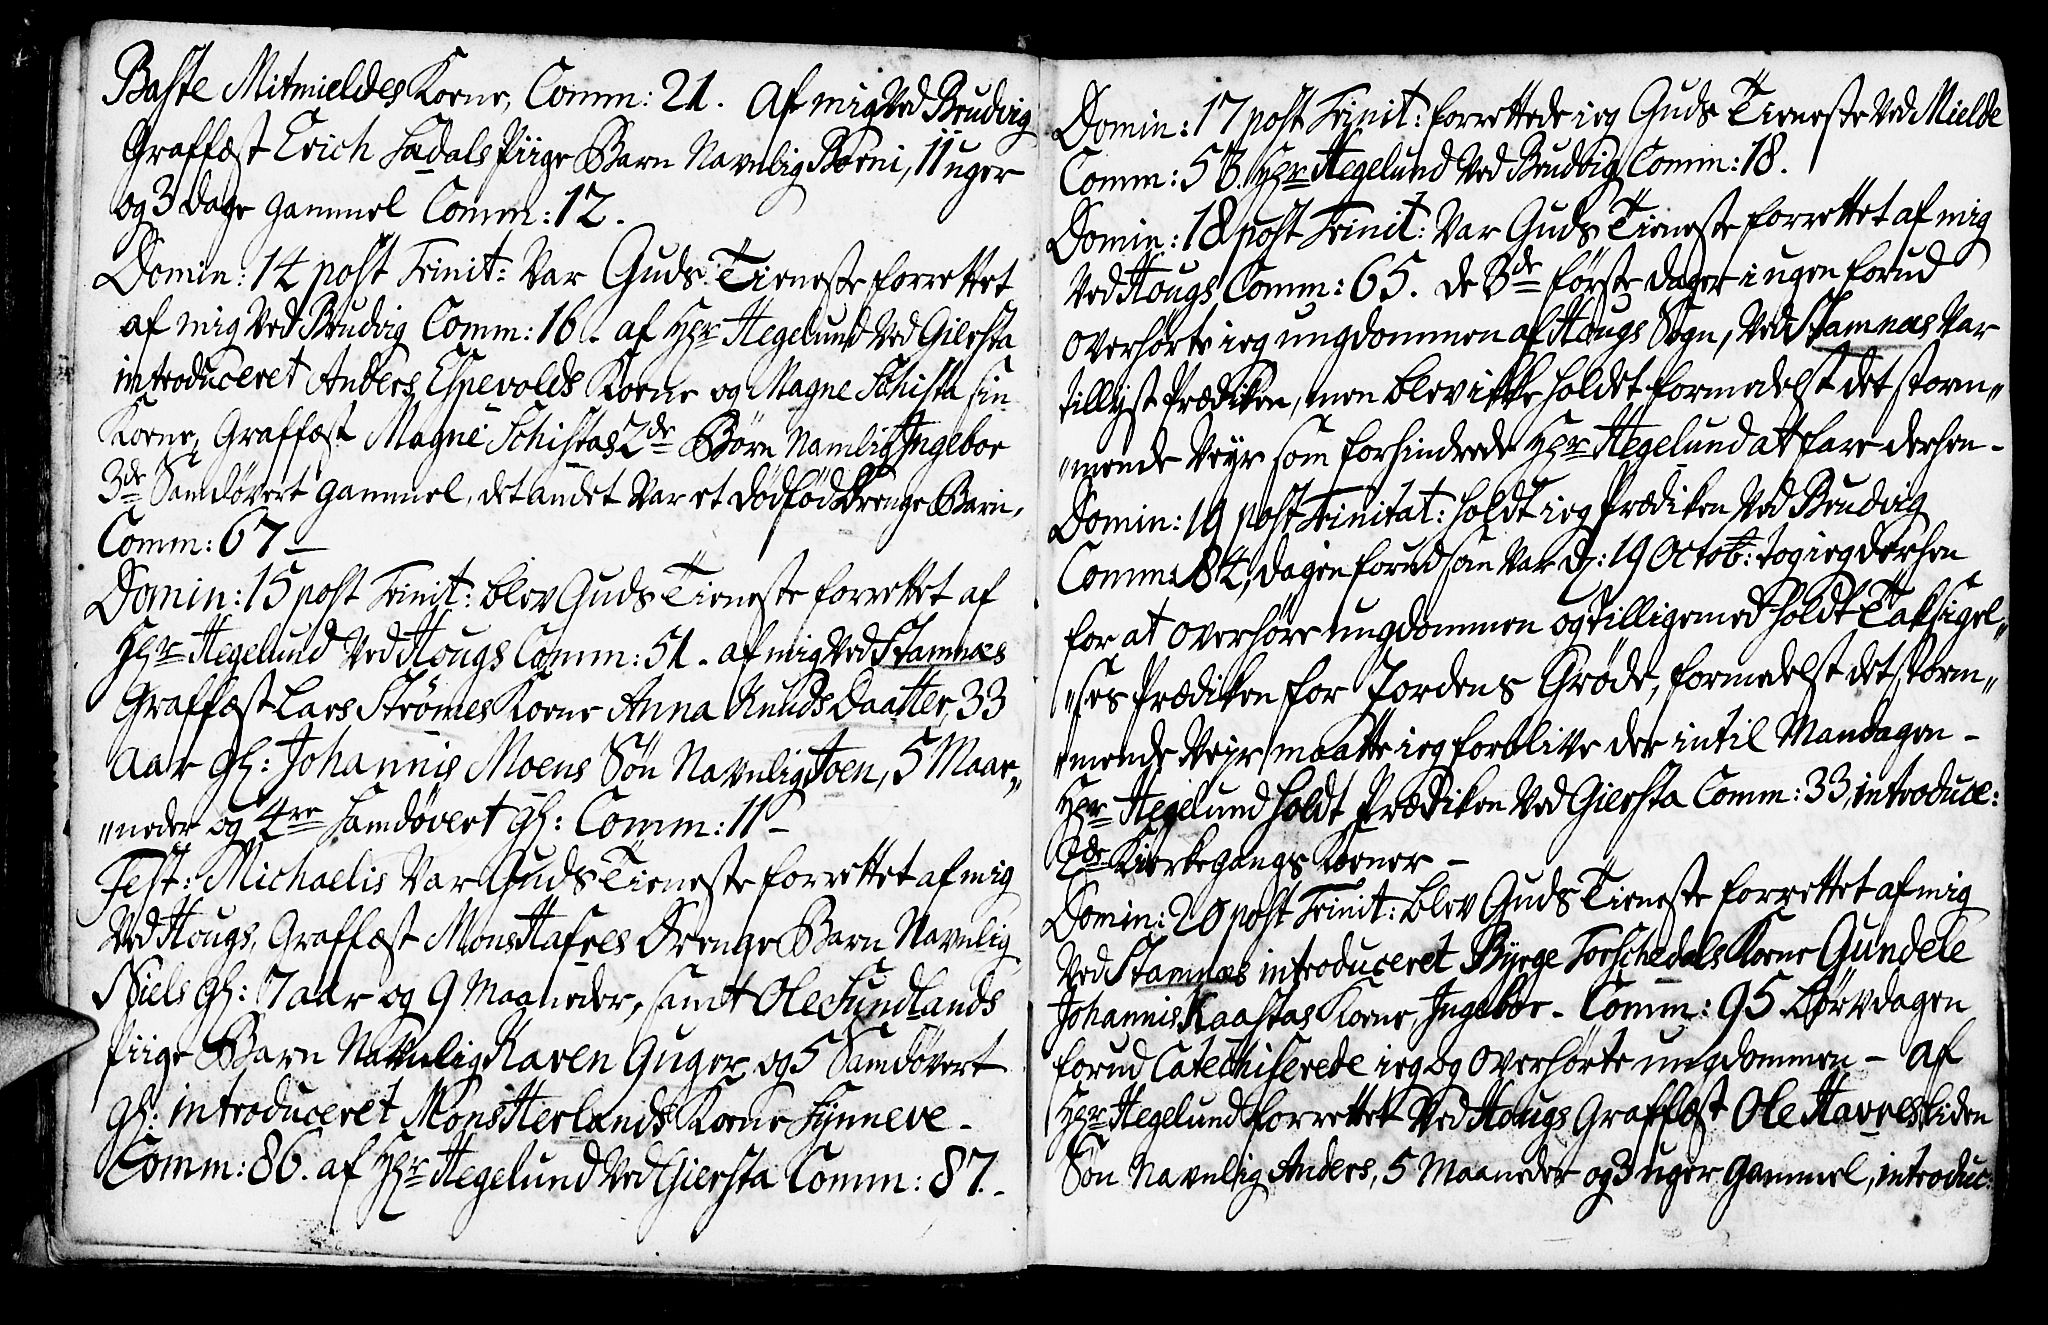 Baste Mitmieldes Koene, Comm: 21. Af mig Ved Brudvig
Graffæst Erich Ladals Piige Barn Navnlig Borni, 11 uger
og 3 dage gammel Comm: 12.
Domin: 14 post Trinit: Var Guds Tieneste forrettet
af mig Ved Brudvig Comm: 16. af Hr Hegelund Ved Giersta
introduceret Anders Espevolds Koene og Magne Schista sin
Koene, Graffæst Magne Schistas 2de Børn Namlig Ingebor
3de Samdøvert gammel, det andet Var et dødfød Drenge Barn,
Comm: 67 –
Domin: 15 post Trinit: blev Guds Tieneste forrettet af
Hr Hegelund Ved Hougs Comm: 51. af mig Ved Stamnæs
Graffæst Lars Strømes Koene Anna Knuds Daatter, 33
Aar gl: Johannis Moens Søn Navnlig Joen, 5 Maa„
„neder og 4re Samdøvert gl: Comm: 11 –
Fest: Michaelis Var Guds Tieneste forrettet af mig
Ved Hougs, Graffæst Mons Hafres Drenge Barn Navnlig
Niels gl: 7 aar og 9 Maaneder, samt Ole Sundlands
Piige Barn Navnlig Karen 6 uger og 5 Samdøvert
gl: introduceret Mons Herlands Koene Synneve –
Comm: 86. af Hr Hegelund Ved Giersta Comm: 87. –
Domin: 17 post Trinit: forrettede ieg Guds Tieneste Ved Mielde
Comm: 53. Hr Hegelund Ved Brudvig Comm: 18.
Domin: 18 post Trinit: Var Guds Tieneste forrettet af mig
Ved Hougs Comm: 65. de 3de første dager i ugen forud
overhørte ieg ungdommen af Hougs Sogn, Ved Stamnæs Var
tillyst Prædiken, men blev ikke holdet formedelst det storm„
„mende Veyr som forhindrede Hr Hegelund at fare derhen –
Domin: 19 post Trinitat: holdt ieg Prædiken Ved Brudvig
Comm: 84, dagen forud som Var d: 19 Octob: tog ieg derhen
for at overhøre ungdommen og tilligemed holdt Taksigel„
„ses Prædiken for Jordens Grøde, formedelst det storm„
„mende Veyr maatte ieg forblive der intil Mandagen –
Hr Hegelund holdt Prædiken Ved Giersta Comm: 33, introduce:
2de Kierkegangs Koener –
Domin: 20 post Trinit: blev Guds Tieneste forrettet af mig
Ved Stamnæs introduceret Byrge Torschedals Koene Gundele
Johannis Kaastas Koene, Ingebor – Comm: 95. Løverdagen
forud Catechiserede ieg og overhørte ungdommen – Af
Hr Hegelund forrettet Ved Hougs Graffæst Ole Havres liden
Søn Navnlig Anders, 5 Maaneder og 3 uger gammel, introduc: